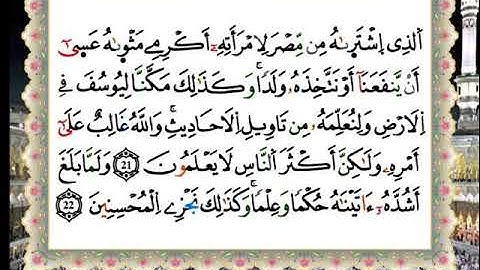 اَ۬لذِے اِ۪شْتَر۪يٰهُ مِن مِّصْرَ لِامْرَأَتِهِۦٓ أَكْرِمِے مَثْو۪يٰهُ عَس۪ىٰٓ
أَنْ يَّنفَعَنَآ أَوْ نَتَّخِذَهُۥ وَلَداٗۖ وَكَذَٰلِكَ مَكَّنَّا لِيُوسُفَ فِے
اِ۬لَارْضِ وَلِنُعَلِّمَهُۥ مِن تَاوِيلِ اِ۬لَاحَادِيثِۖ وَاللَّهُ غَالِبٌ عَلَىٰٓ
أَمْرِهِۦ وَلَٰكِنَّ أَكْثَرَ اَ۬لنَّاسِ لَا يَعْلَمُونَۖ 21 وَلَمَّا بَلَغَ
أَشُدَّهُۥٓ ءَاتَيْنَٰهُ حُكْماٗ وَعِلْماٗۖ وَكَذَٰلِكَ نَجْزِے اِ۬لْمُحْسِنِينَۖ 22